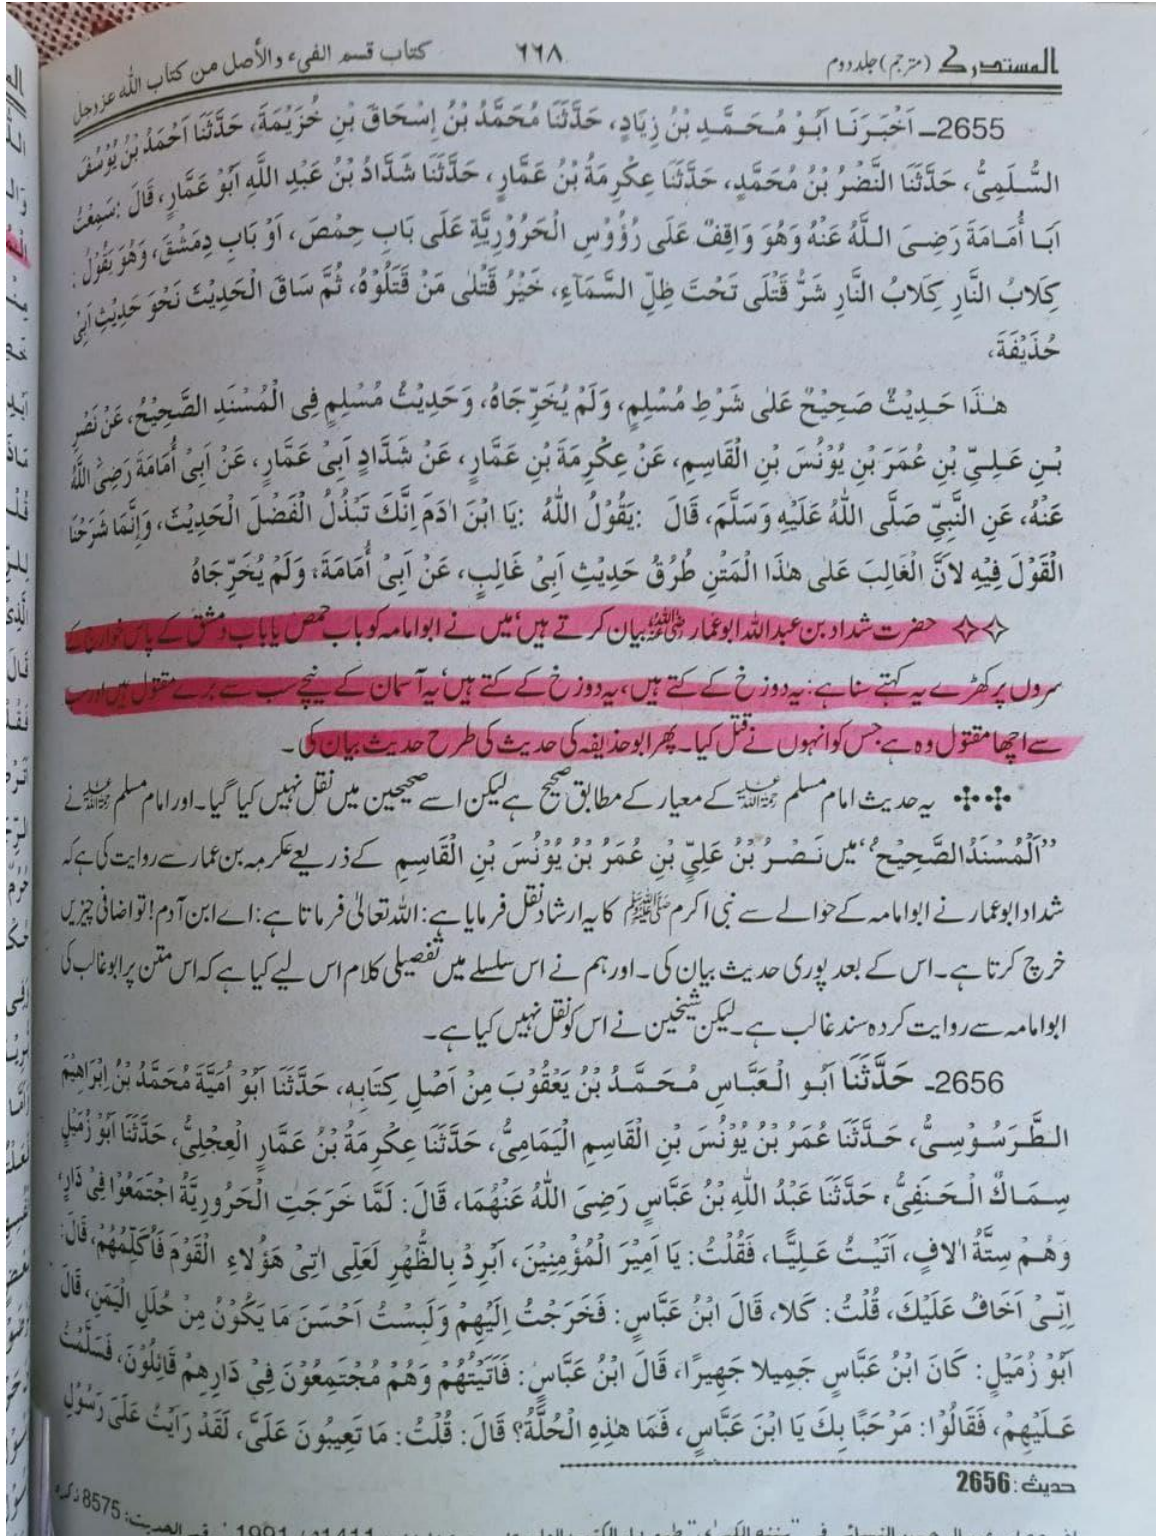 المستدرك (مترجم) جلد دوم ٦٦٨ كتاب قسم الفيء والأصل من كتاب الله عزوجل
2655ـ اَخْبَرَنَا اَبُوْ مُحَمَّدِ بْنُ زِيَادٍ، حَدَّثَنَا مُحَمَّدُ بْنُ إِسْحَاقَ بْنِ خُزَيْمَةَ، حَدَّثَنَا اَحْمَدُ بْنُ يُوْسُفَ
السُّلَمِيُّ، حَدَّثَنَا النَّضْرُ بْنُ مُحَمَّدٍ، حَدَّثَنَا عِكْرِمَةُ بْنُ عَمَّارٍ، حَدَّثَنَا شَدَّادُ بْنُ عَبْدِ اللّٰهِ اَبُوْ عَمَّارٍ، قَالَ: سَمِعْتُ
اَبَا أُمَامَةَ رَضِىَ اللّٰهُ عَنْهُ وَهُوَ وَاقِفٌ عَلَى رُؤُوْسِ الْحَرُوْرِيَّةِ عَلَى بَابِ حِمْصَ، اَوْ بَابِ دِمَشْقَ، وَهُوَ يَقُوْلُ:
كِلَابُ النَّارِ كِلَابُ النَّارِ شَرُّ قَتْلَى تَحْتَ ظِلِّ السَّمَآءِ، خَيْرُ قَتْلٰى مَنْ قَتَلُوْهُ، ثُمَّ سَاقَ الْحَدِيْثَ نَحْوَ حَدِيْثِ اَبِىْ
حُذَيْفَةَ،
هٰذَا حَدِيْثٌ صَحِيْحٌ عَلٰى شَرْطِ مُسْلِمٍ، وَلَمْ يُخَرِّجَاهُ، وَحَدِيْثُ مُسْلِمٍ فِى الْمُسْنَدِ الصَّحِيْحُ، عَنْ نَصْرِ
بْنِ عَلِىِّ بْنِ عُمَرَ بْنِ يُوْنُسَ بْنِ الْقَاسِمِ، عَنْ عِكْرِمَةَ بْنِ عَمَّارٍ، عَنْ شَدَّادٍ اَبِىْ عَمَّارٍ، عَنْ اَبِىْ أُمَامَةَ رَضِىَ اللّٰهُ
عَنْهُ، عَنِ النَّبِيِّ صَلَّى اللّٰهُ عَلَيْهِ وَسَلَّمَ، قَالَ :يَقُوْلُ اللّٰهُ :يَا ابْنَ اٰدَمَ اِنَّكَ تَبْذُلُ الْفَضْلَ الْحَدِيْثَ، وَاِنَّمَا شَرَحْنَا
الْقَوْلَ فِيْهِ لاَنَّ الْغَالِبَ عَلٰى هٰذَا الْمَتْنِ طُرُقُ حَدِيْثِ اَبِىْ غَالِبٍ، عَنْ اَبِىْ أُمَامَةَ، وَلَمْ يُخَرِّجَاهُ
✧✧ حضرت شداد بن عبداللہ ابوعمار رضی اللہ عنہ بیان کرتے ہیں' میں نے ابوامامہ کو باب حمص یا باب دمشق کے پاس خوارج کے
سروں پر کھڑے یہ کہتے سنا ہے: یہ دوزخ کے کتے ہیں، یہ دوزخ کے کتے ہیں' یہ آسمان کے نیچے سب سے برے مقتول ہیں اور سب
سے اچھا مقتول وہ ہے جس کو انہوں نے قتل کیا۔ پھر ابوحذیفہ کی حدیث کی طرح حدیث بیان کی۔
✤✤ یہ حدیث امام مسلم رحمۃ اللہ علیہ کے معیار کے مطابق صحیح ہے لیکن اسے صحیحین میں نقل نہیں کیا گیا۔ اور امام مسلم رحمۃ اللہ علیہ نے
"اَلْمُسْنَدُ الصَّحِيْحُ" میں نَصْرُ بْنُ عَلِيِّ بْنِ عُمَرُ بْنُ يُوْنُسَ بْنِ الْقَاسِمِ کے ذریعے عکرمہ بن عمار سے روایت کی ہے کہ
شداد ابوعمار نے ابوامامہ کے حوالے سے نبی اکرم ﷺ کا یہ ارشاد نقل فرمایا ہے: اللہ تعالٰی فرماتا ہے: اے ابن آدم! تو اضافی چیزیں
خرچ کرتا ہے۔ اس کے بعد پوری حدیث بیان کی۔ اور ہم نے اس سلسلے میں تفصیلی کلام اس لیے کیا ہے کہ اس متن پر ابوغالب کی
ابوامامہ سے روایت کردہ سند غالب ہے۔ لیکن شیخین نے اس کو نقل نہیں کیا ہے۔
2656ـ حَدَّثَنَا اَبُو الْعَبَّاسِ مُحَمَّدُ بْنُ يَعْقُوْبَ مِنْ اَصْلِ كِتَابِهِ، حَدَّثَنَا اَبُوْ اُمَيَّةَ مُحَمَّدُ بْنُ اِبْرَاهِيْمَ
الطَّرَسُوْسِىُّ، حَدَّثَنَا عُمَرُ بْنُ يُوْنُسَ بْنِ الْقَاسِمِ الْيَمَامِىُّ، حَدَّثَنَا عِكْرِمَةُ بْنُ عَمَّارٍ الْعِجْلِىُّ، حَدَّثَنَا اَبُوْ زُمَيْلٍ
سِمَاكٌ الْحَنَفِىُّ، حَدَّثَنَا عَبْدُ اللّٰهِ بْنُ عَبَّاسٍ رَضِىَ اللّٰهُ عَنْهُمَا، قَالَ: لَمَّا خَرَجَتِ الْحَرُوْرِيَّةُ اجْتَمَعُوْا فِىْ دَارٍ،
وَهُمْ سِتَّةُ اٰلافٍ، اَتَيْتُ عَلِيًّا، فَقُلْتُ: يَا اَمِيْرَ الْمُؤْمِنِيْنَ، اَبْرِدْ بِالظُّهْرِ لَعَلِّى اٰتِىْ هَؤُلاءِ الْقَوْمَ فَاُكَلِّمُهُمْ، قَالَ:
اِنِّىْ اَخَافُ عَلَيْكَ، قُلْتُ: كَلا، قَالَ ابْنُ عَبَّاسٍ: فَخَرَجْتُ اِلَيْهِمْ وَلَبِسْتُ اَحْسَنَ مَا يَكُوْنُ مِنْ حُلَلِ الْيَمَنِ، قَالَ
اَبُوْ زُمَيْلٍ: كَانَ ابْنُ عَبَّاسٍ جَمِيلا جَهِيرًا، قَالَ ابْنُ عَبَّاسٍ: فَاَتَيْتُهُمْ وَهُمْ مُجْتَمِعُوْنَ فِىْ دَارِهِمْ قَائِلُوْنَ، فَسَلَّمْتُ
عَلَيْهِمْ، فَقَالُوْا: مَرْحَبًا بِكَ يَا ابْنَ عَبَّاسٍ، فَمَا هٰذِهِ الْحُلَّةُ؟ قَالَ: قُلْتُ: مَا تَعِيبُونَ عَلَىَّ، لَقَدْ رَاَيْتُ عَلَى رَسُوْلِ
حديث: 2656